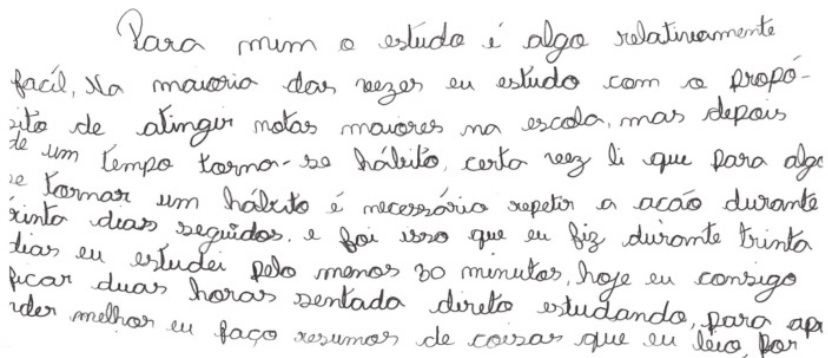 Para mim o estudo é algo relativamente
facíl, Na maioria das vezes eu estudo com o propó-
sito de atingir notas maiores na escola, mas depois
de um tempo torna-se hábito, certa vez li que para algo
se tornar um hábito é necessário repetir a acão durante
trinta dias seguidos, e foi isso que eu fiz durante trinta
dias eu estudei pelo menos 30 minutos, hoje eu consigo
ficar duas horas sentada direto estudando, para apr
nder melhor eu faço resumos de coisas que eu leio, por